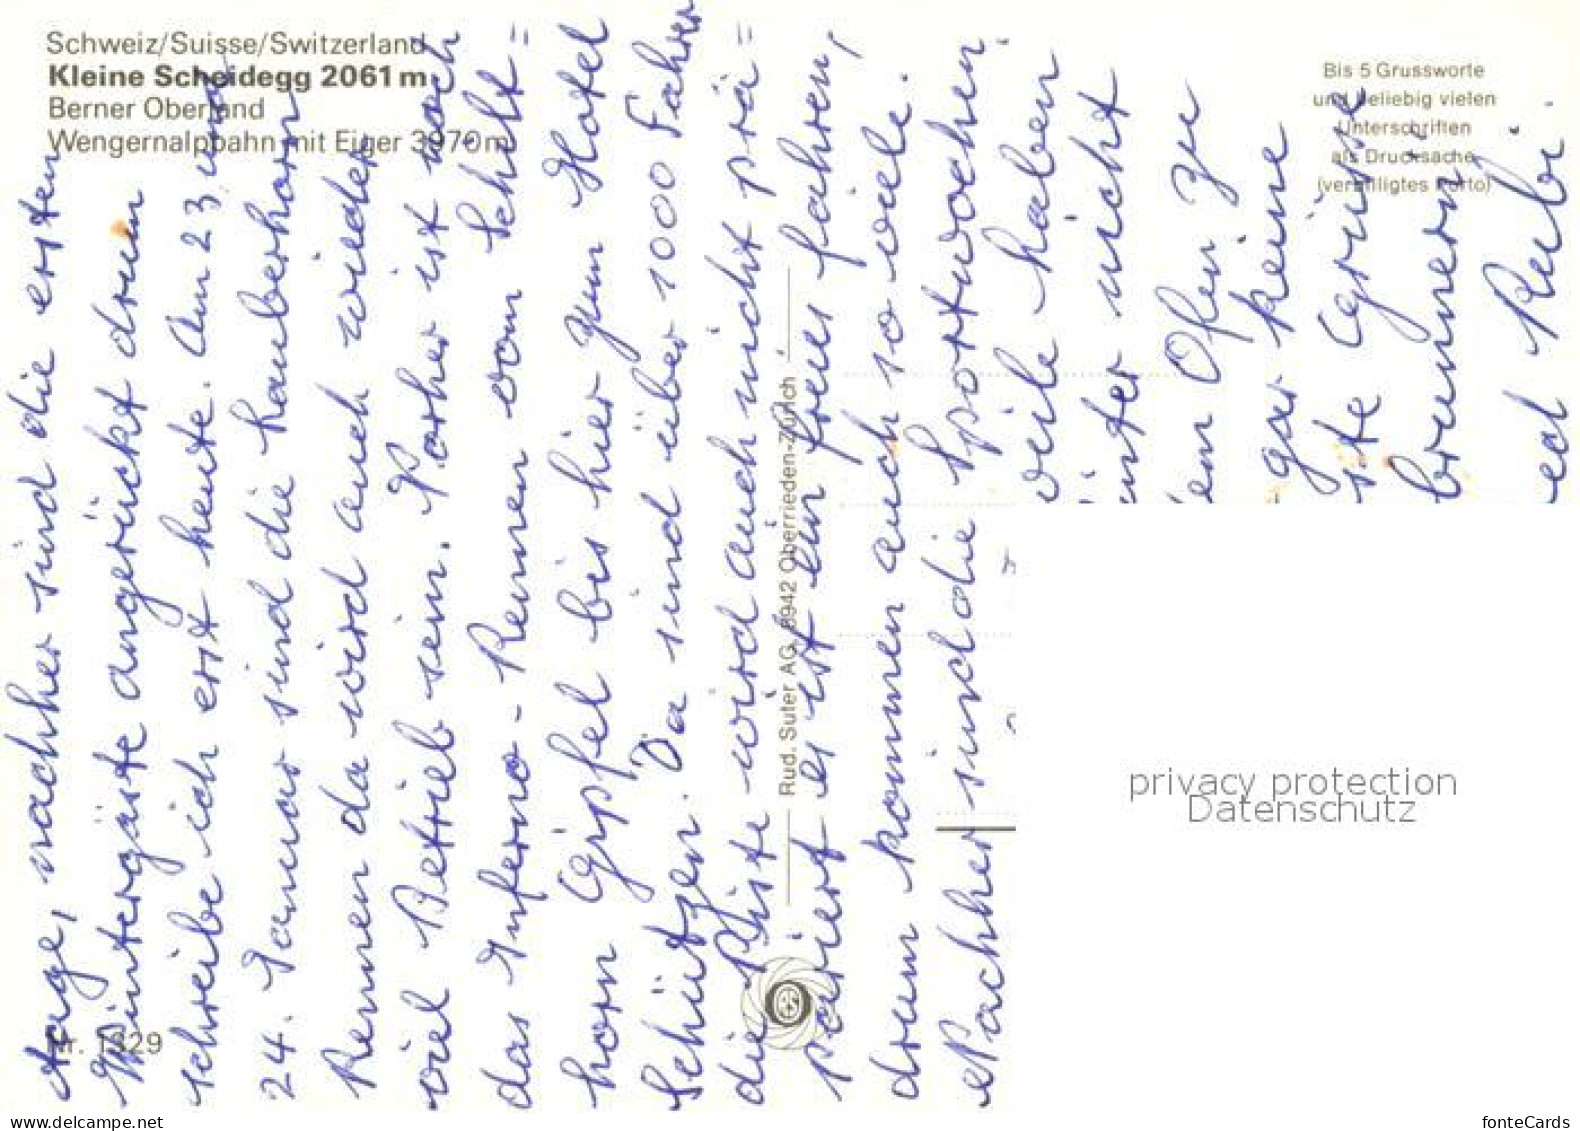 Schweiz/Suisse/Switzerland
Kleine Scheidegg 2061 m
Berner Oberland
Wengernalpbahn mit Eiger 3970 m
Bis 5 Grussworte
und beliebig vielen
Unterschriften
als Drucksache
(verbilligtes Porto)
Rud. Suter AG, 8942 Oberrieden-Zürich
Nr. 1329
tage, nachher sind die ersten
Wintergäste angerückt drum
schreibe ich erst heute. Am 23 und
24. Januar sind die Lauberhorn
Rennen da wird auch wieder
viel Betrieb sein. Vorher ist noch
das Inferno-Rennen vom Schilt=
horn Gipfel bis hier zum Hotel
Schützen. Da sind über 1000 Fahrer
die Piste wird auch nicht prä=
pariert es ist ein freies fahren,
drum kommen auch so viele.
Nachher sind die Sportwochen,
weile haben
inter nicht
em Ofen zu
gar keine
ste Grüsse
brunnern
ed Rubi.
privacy protection
Datenschutz
www.delcampe.net
fonteCards